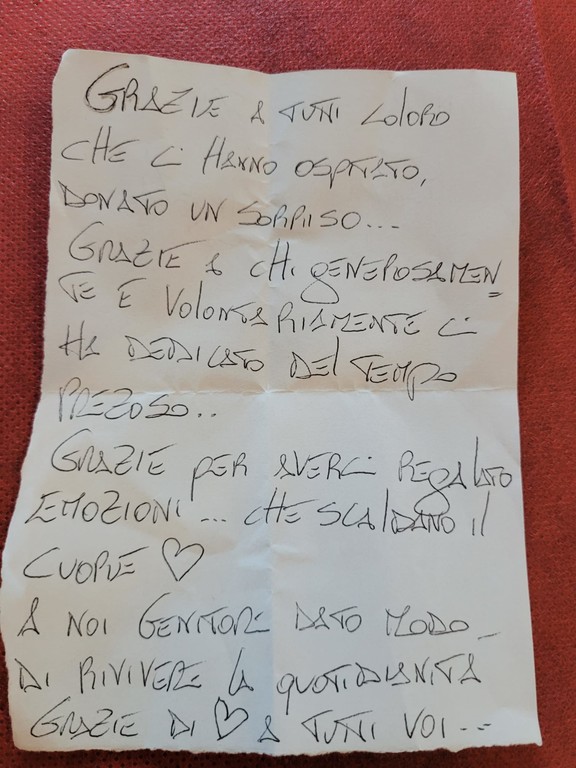 GRAZIE A TUTTI COLORO
CHE CI HANNO OSPITATO,
DONATO UN SORRISO...
GRAZIE A CHI GENEROSAMEN=
TE E VOLONTARIAMENTE CI
HA DEDICATO DEL TEMPO
PREZIOSO..
GRAZIE PER AVERCI REGALATO
EMOZIONI ... CHE SCALDANO IL
CUORE ♡
A NOI GENITORI DATO MODO
DI RIVIVERE LA QUOTIDIANITÀ
GRAZIE DI ♡ A TUTTI VOI...